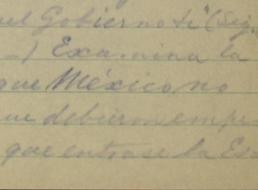 el Gobierno si" (Seg.
...) Examina la
que México no
ue debieron empe
que entrase la Es